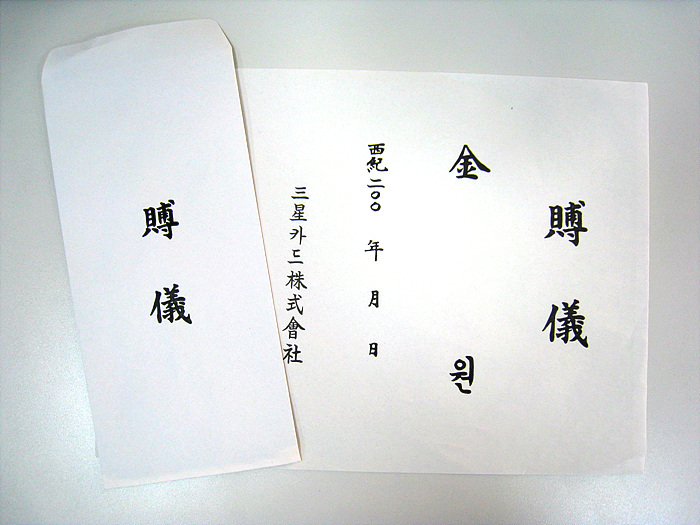 賻儀
賻儀
金 원
西紀二〇〇 年 月 日
三星카드株式會社